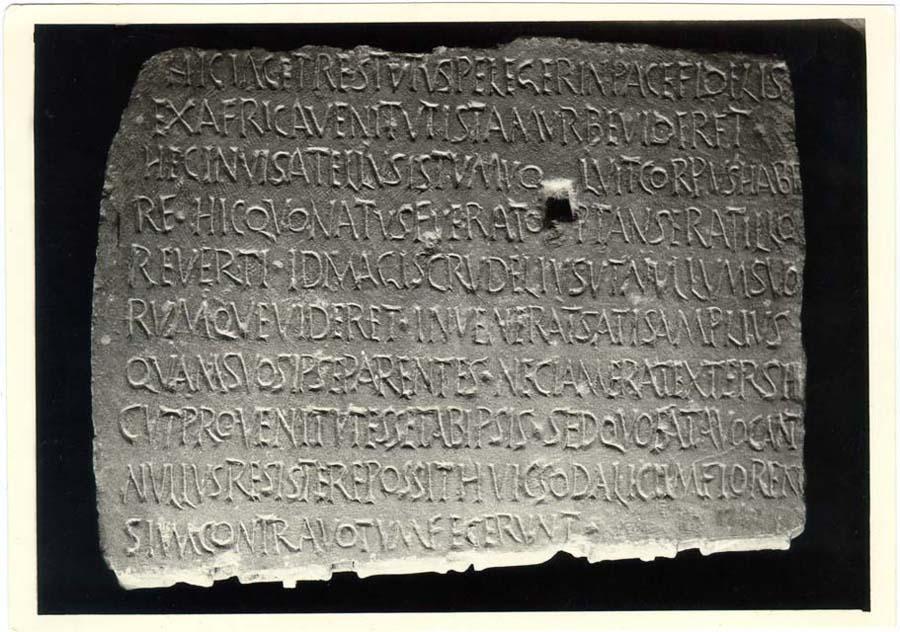 HIC IACET RESTVTVS PELEGER IN PACE FIDELIS
EX AFRICA VENIT VT ISTAM VRBE VIDERET
HEC INVISA TELLVS ISTVM VO LVIT CORPVS HABE
RE · HIC QVO NATVS FVERAT OPTANS ERAT ILLO
REVERTI · ID MAGIS CRVDELIVS VT NVLLVM SVO
RVMQVE VIDERET · INVENERAT SATIS AMPLIVS
QVAM SVOS IPSE PARENTES · NEC IAM ERAT EXTER SI
CVT PROVENIT VT ESSET AB IPSIS · SED QVO FATA VOCANT
NVLLVS RESISTERE POSSIT HVIC SODALICIVM FLOREN
SIVM CONTRA VOTVM FECERVNT